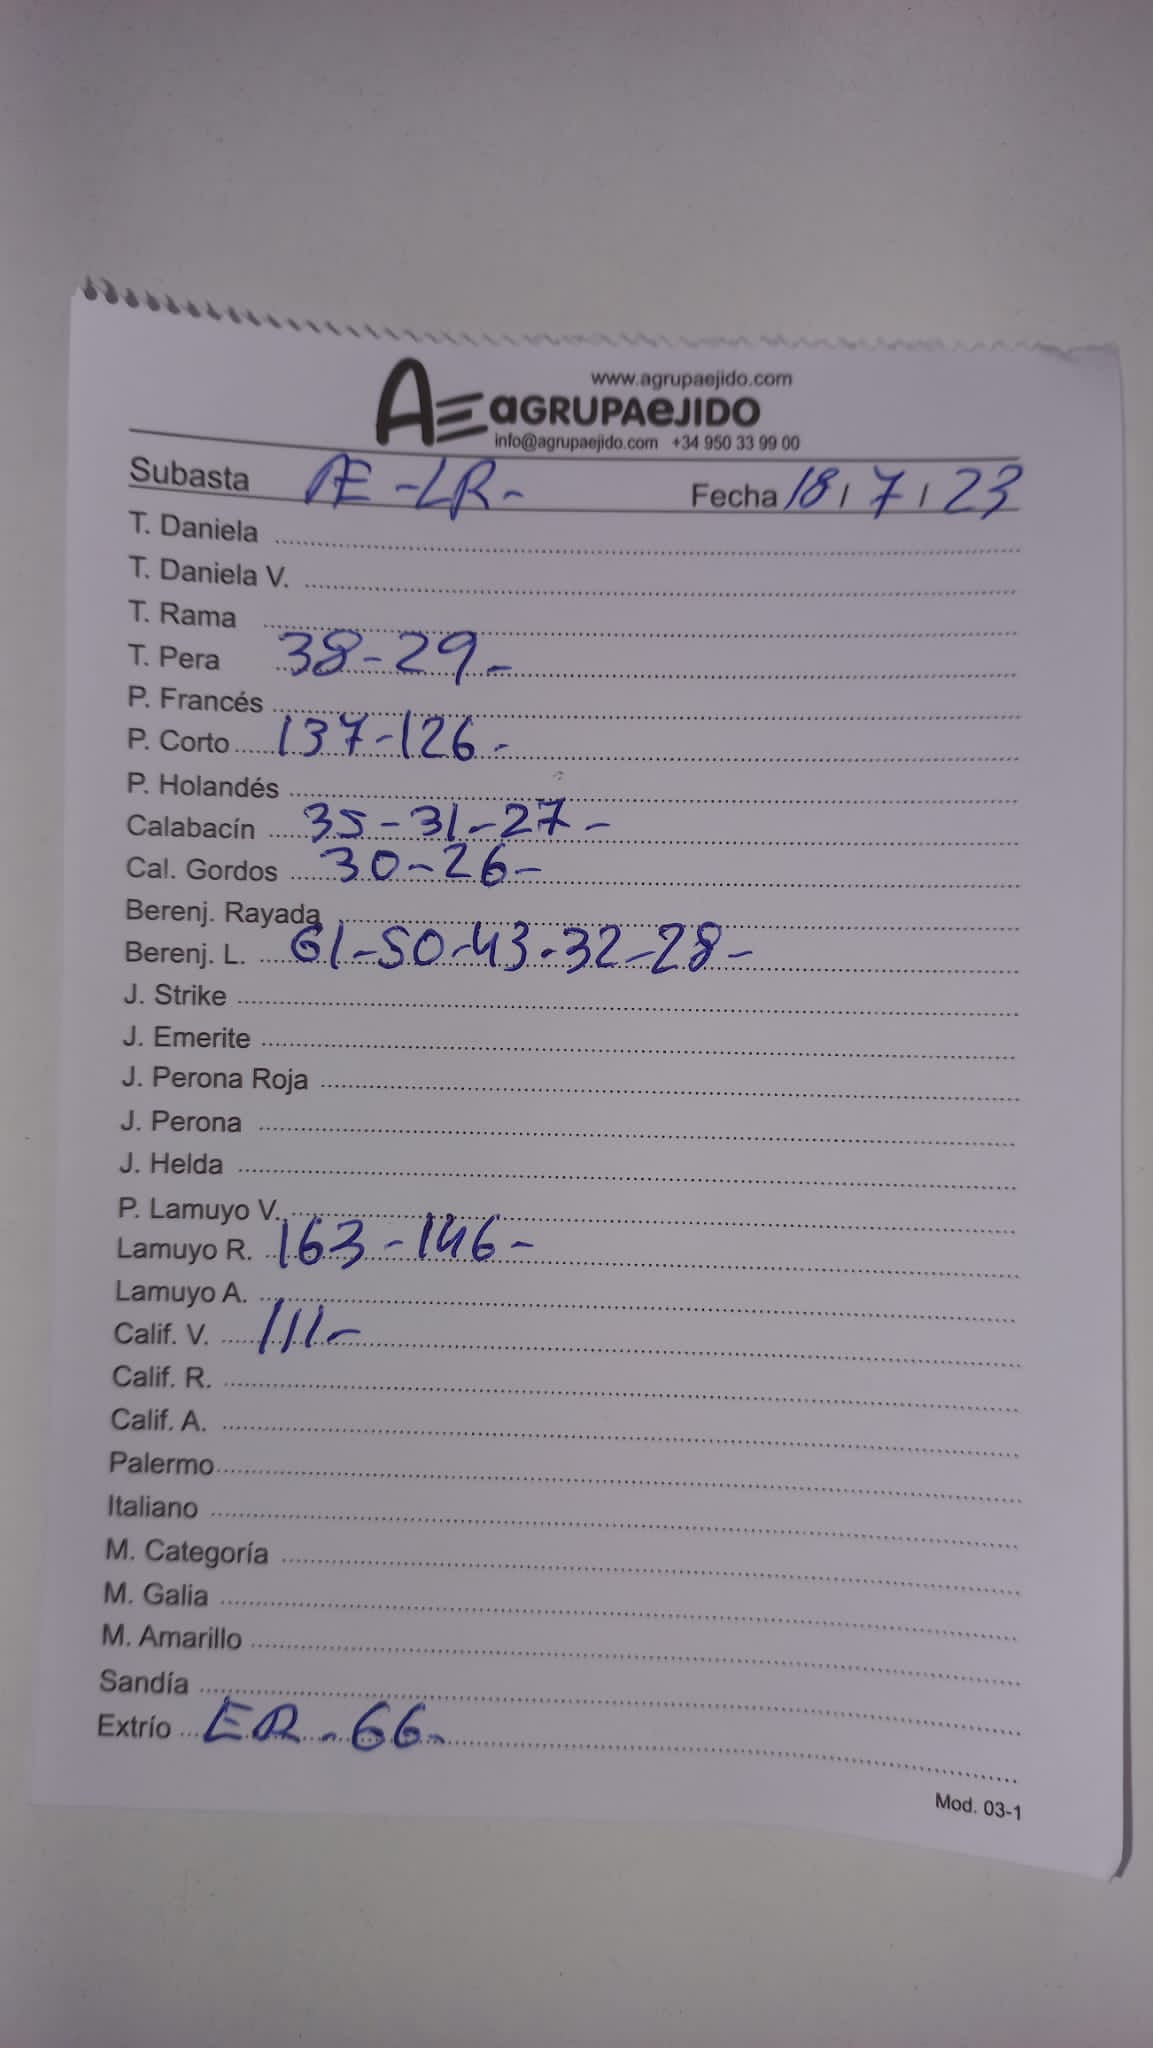 www.agrupaejido.com
AE aGRUPAeJIDO
info@agrupaejido.com +34 950 33 99 00
Subasta AE-LR- Fecha 18/7/23
T. Daniela
T. Daniela V.
T. Rama
T. Pera 38-29-
P. Francés
P. Corto 137-126-
P. Holandés
Calabacín 35-31-27-
Cal. Gordos 30-26-
Berenj. Rayada
Berenj. L. 61-50-43-32-28-
J. Strike
J. Emerite
J. Perona Roja
J. Perona
J. Helda
P. Lamuyo V.
Lamuyo R. 163-146-
Lamuyo A.
Calif. V. 111-
Calif. R.
Calif. A.
Palermo
Italiano
M. Categoría
M. Galia
M. Amarillo
Sandía
Extrío ER-66-
Mod. 03-1